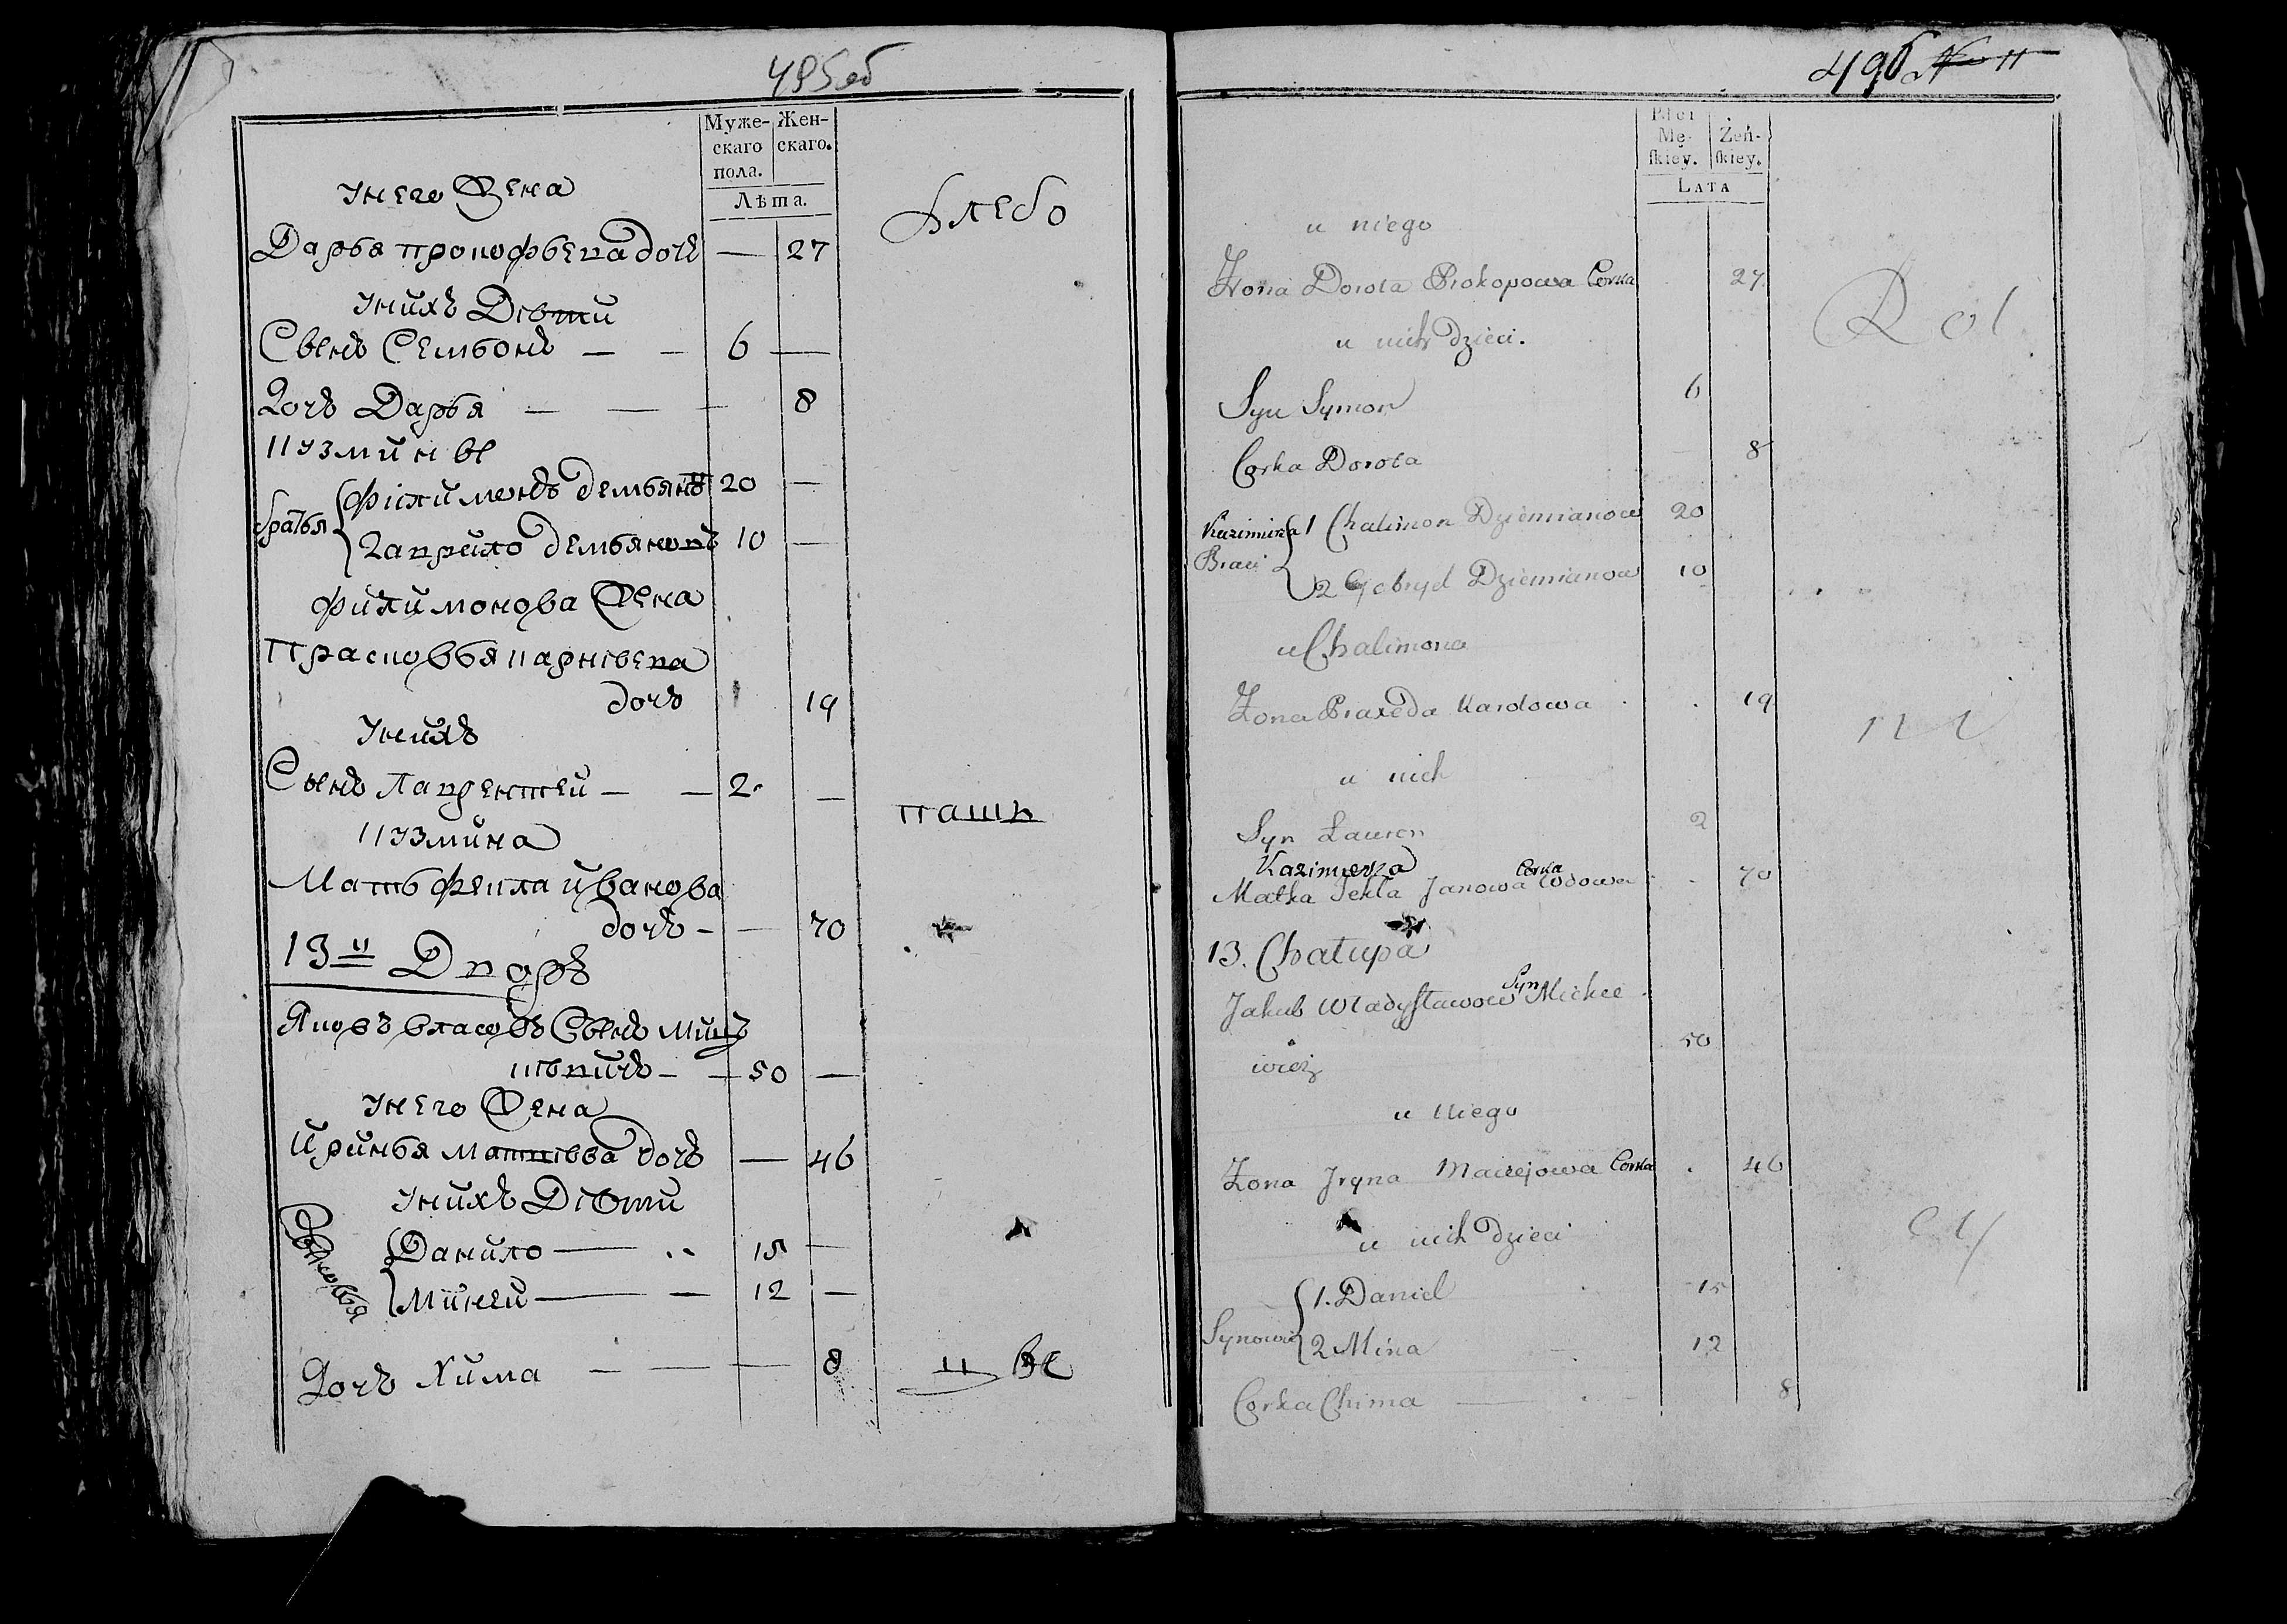 495об
Муже- Жен-
скаго скаго.
пола.
Лѣта.
У него Жена
Дарья прокофьева дочь — 27
У нихъ Дѣти
Сынъ Семіонъ — — 6 —
Дочь Дарья — — — 8
Кузмины
братья
Филимонъ демьяновъ 20 —
Гаврило демьяновъ 10 —
филимонова Жена
Прасковья карнѣева
дочь 19
У нихъ
Сынъ Лаврентей — — 2 —
Кузмина
Мать фекла иванова
дочь — — 70
13й Дворъ
Яковъ власовъ Сынъ миц
кѣвичь — — 50 —
У него Жена
Иринья матвѣева дочь — 46
У нихъ Дѣти
Сыновья
Данило — 15 —
Миней — — 12 —
Дочь Хима — — — 8
Хлебо
паш
цы
496 No 11
Płci
Mę- Żeń-
skiey. skiey.
LATA
u niego
Żona Dorota Prokopowa Corka 27
u nich dzieci.
Syn Symon 6
Corka Dorota 8
Kazimirza
Braci
1 Chalimon Dziemianow 20
2 Gabryel Dziemianow 10
u Chalimona
Żona Praxeda Karolowa 19
u nich
Syn Lauren 2
Kazimierza
Matka Tekla Janowa Corka Wdowa 70
13. Chałupa
Jakub Władysławow Syn Mickie
wicz 50
u niego
Żona Iryna Maciejowa Corka 46
u nich dzieci
Synowie
1. Daniel 15
2 Mina 12
Corka Chima — 8
Rol
ni
cy